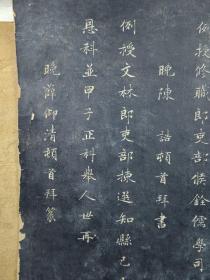 例授修職郎吏部候銓儒學司
晚陳 誥頓首拜書
例授文林郎吏部揀選知縣己
恩科並甲子正科舉人世再
晚薛仰清頓首拜篆